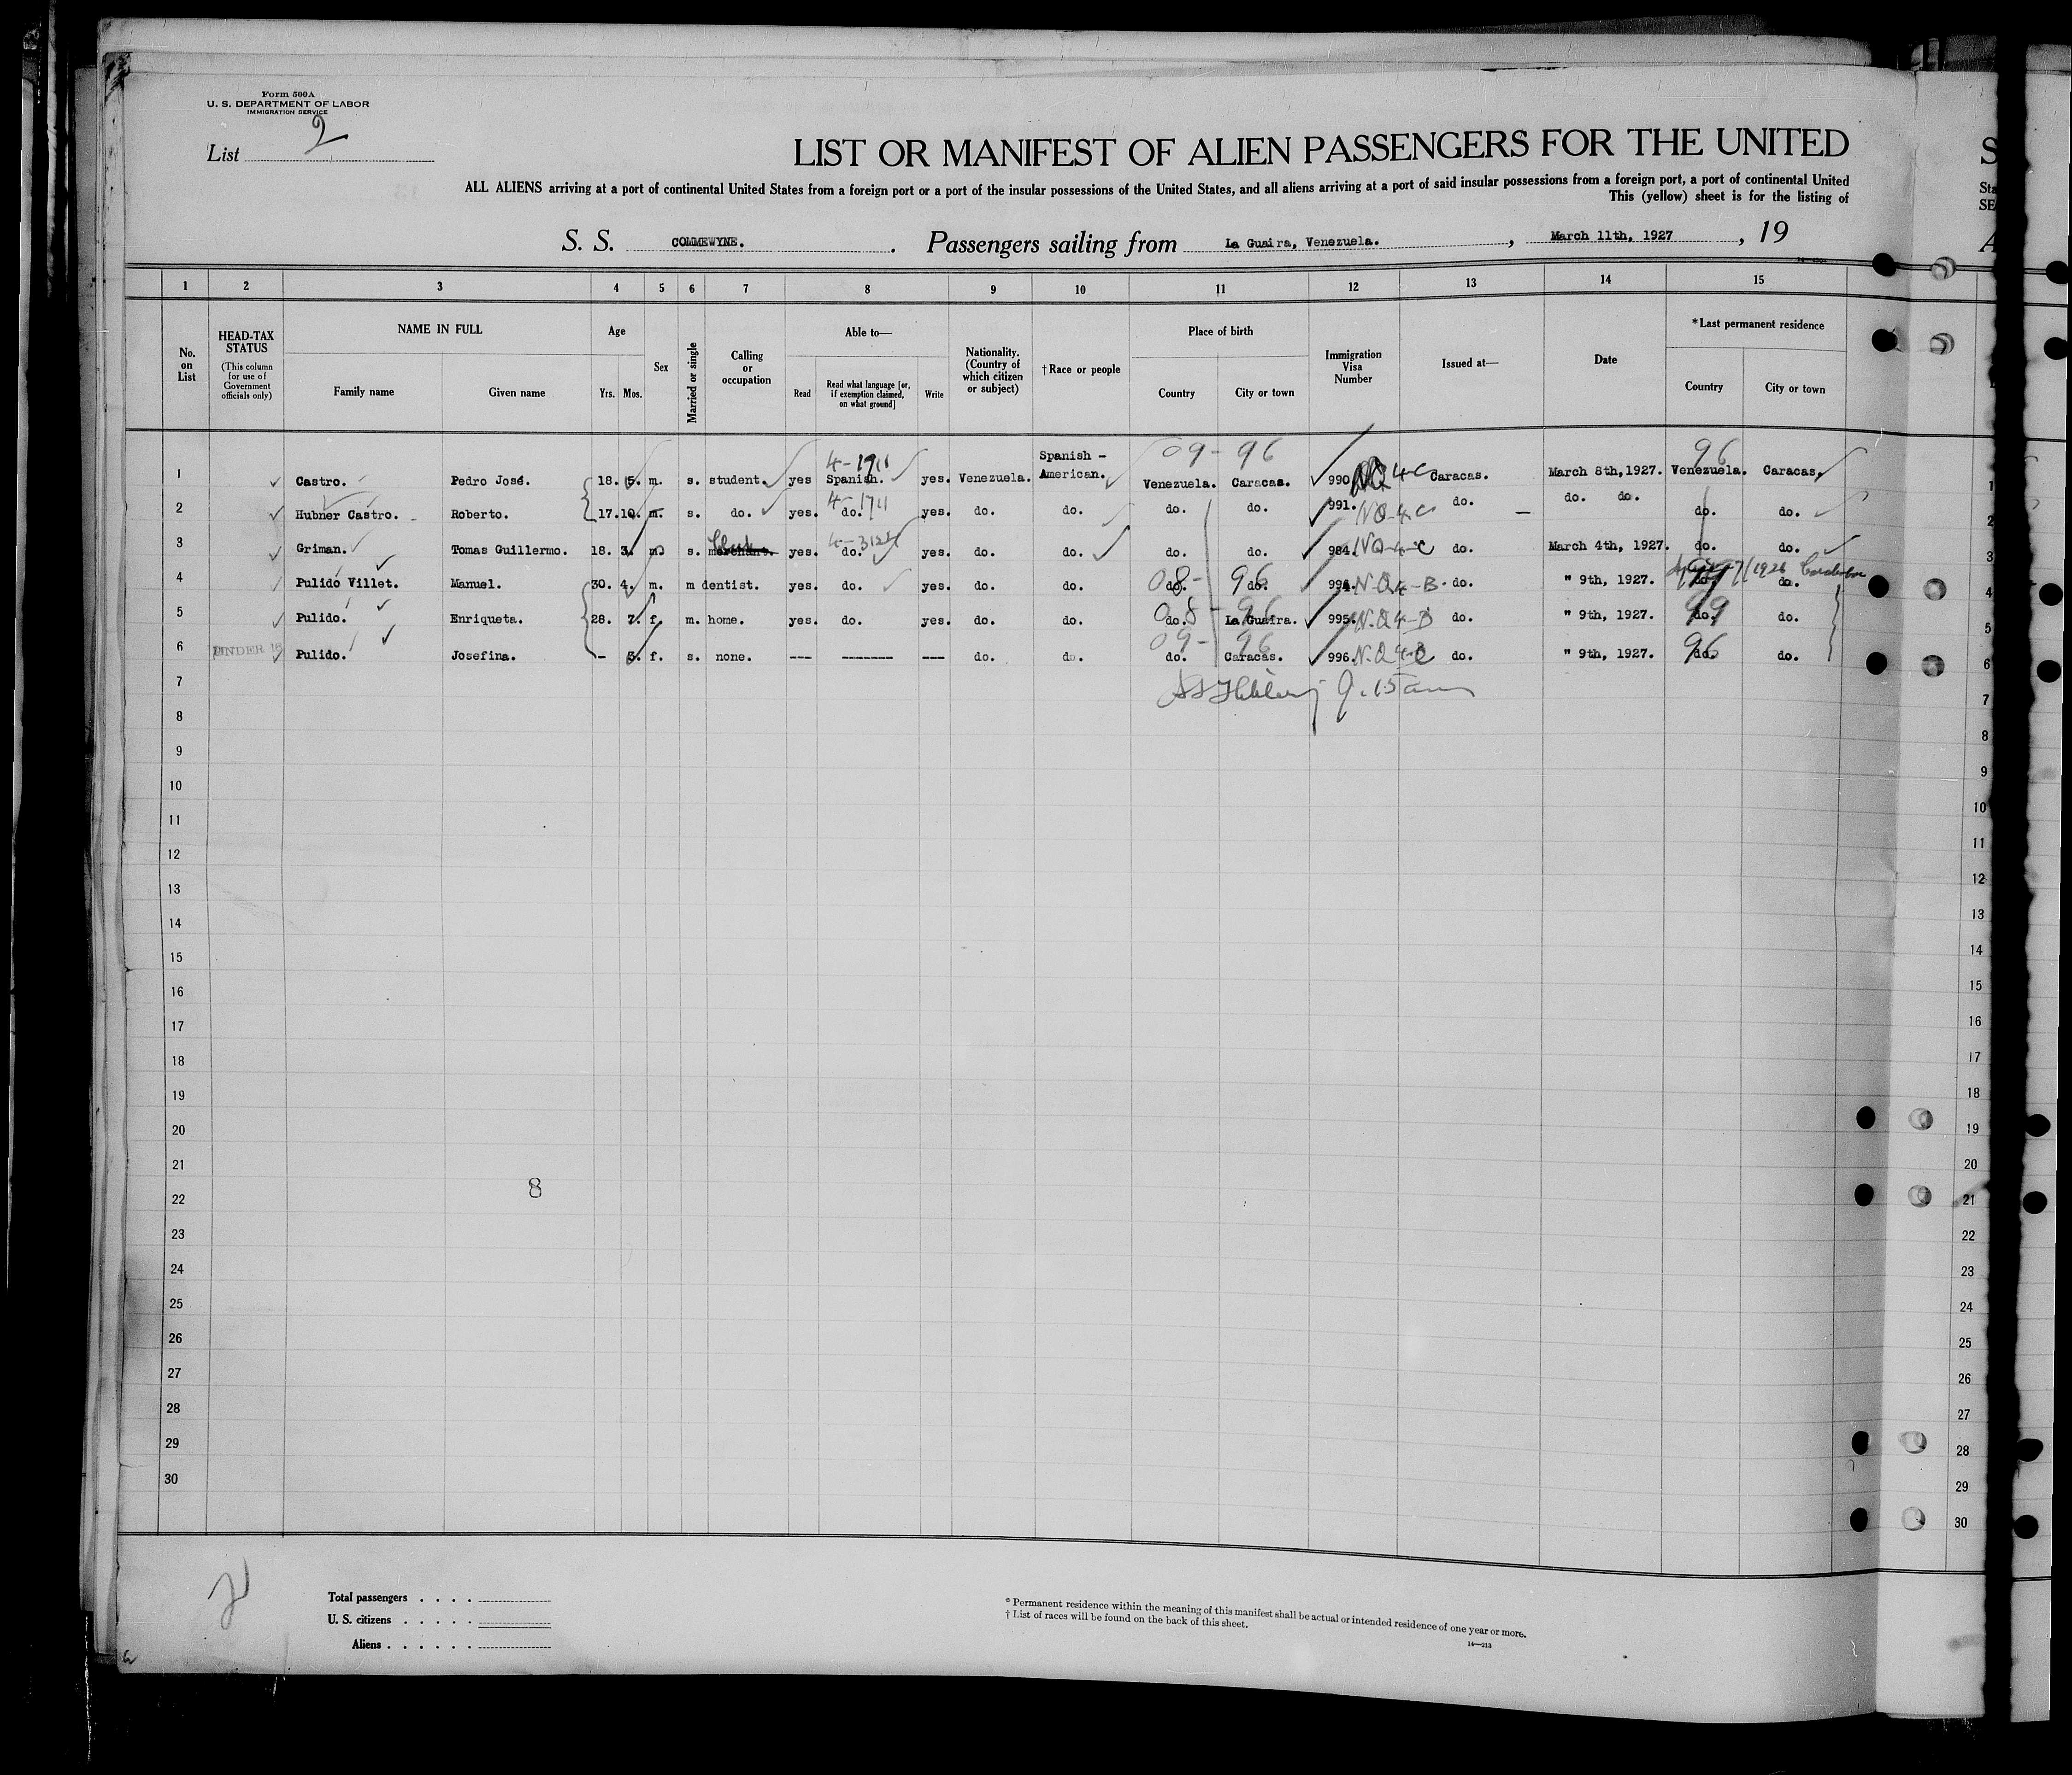 Form 500A
U. S. DEPARTMENT OF LABOR
IMMIGRATION SERVICE
List 2
LIST OR MANIFEST OF ALIEN PASSENGERS FOR THE UNITED
ALL ALIENS arriving at a port of continental United States from a foreign port or a port of the insular possessions of the United States, and all aliens arriving at a port of said insular possessions from a foreign port, a port of continental United
This (yellow) sheet is for the listing of
S. S. COMMEWYNE. . Passengers sailing from La Guaira, Venezuela. , March 11th, 1927 , 19
1 2 3 4 5 6 7 8 9 10 11 12 13 14 15
No. on List
HEAD-TAX STATUS
(This column for use of Government officials only)
NAME IN FULL
Family name Given name
Age
Yrs. Mos.
Sex
Married or single
Calling or occupation
Able to—
Read Read what language [or, if exemption claimed, on what ground] Write
Nationality. (Country of which citizen or subject)
†Race or people
Place of birth
Country City or town
Immigration Visa Number
Issued at—
Date
*Last permanent residence
Country City or town
09-96 96
4-1911
1 Castro. Pedro José. 18. 5. m. s. student. yes Spanish. yes. Venezuela. Spanish - American. Venezuela. Caracas. 990 NQ 4-C Caracas. March 8th, 1927. Venezuela. Caracas. 1
4-1711
2 Hubner Castro. Roberto. 17. 10. m. s. do. yes. do. yes. do. do. do. do. 991. NQ-4-C do. do. do. do. do. 2
4-3124
3 Griman. Tomas Guillermo. 18. 3. m. s. merchant. Clerk yes. do. yes. do. do. do. do. 984. NQ-4-C do. March 4th, 1927. do. do. 3
08-96
4 Pulido Villet. Manuel. 30. 4. m. m dentist. yes. do. yes. do. do. do. do. 994. N.Q4-B. do. " 9th, 1927. do. do. 4
08-96 99
5 Pulido. Enriqueta. 28. 7. f. m. home. yes. do. yes. do. do. do. La Guaira. 995. N.Q4-B do. " 9th, 1927. do. do. 5
09-96 96
6 UNDER 16 Pulido. Josefina. - 3. f. s. none. --- ------- --- do. do. do. Caracas. 996. N.Q4-C do. " 9th, 1927. do. do. 6
9.15 am
7 7
8 8
9 9
10 10
11 11
12 12
13 13
14 14
15 15
16 16
17 17
18 18
19 19
20 20
21 21
8
22 22
23 23
24 24
25 25
26 26
27 27
28 28
29 29
30 30
2
Total passengers . . . .
U. S. citizens . . . . .
Aliens . . . . . .
* Permanent residence within the meaning of this manifest shall be actual or intended residence of one year or more.
† List of races will be found on the back of this sheet.
14—213